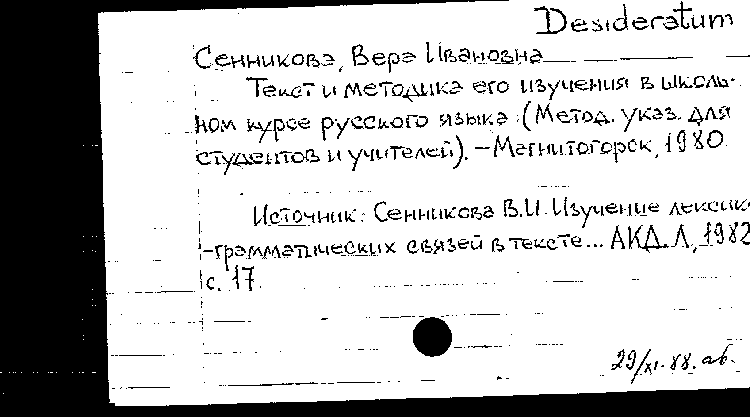 Desideratum
Сенникова, Вера Ивановна
Текст и методика его изучения в школь-
ном курсе русского языка. (Метод. указ. для
студентов и учителей). – Магнитогорск, 1980.
Источник: Сенникова В.И. Изучение лексик
-грамматических связей в тексте... АКД. Л., 1982
с. 17.
29/XI-88. аб.